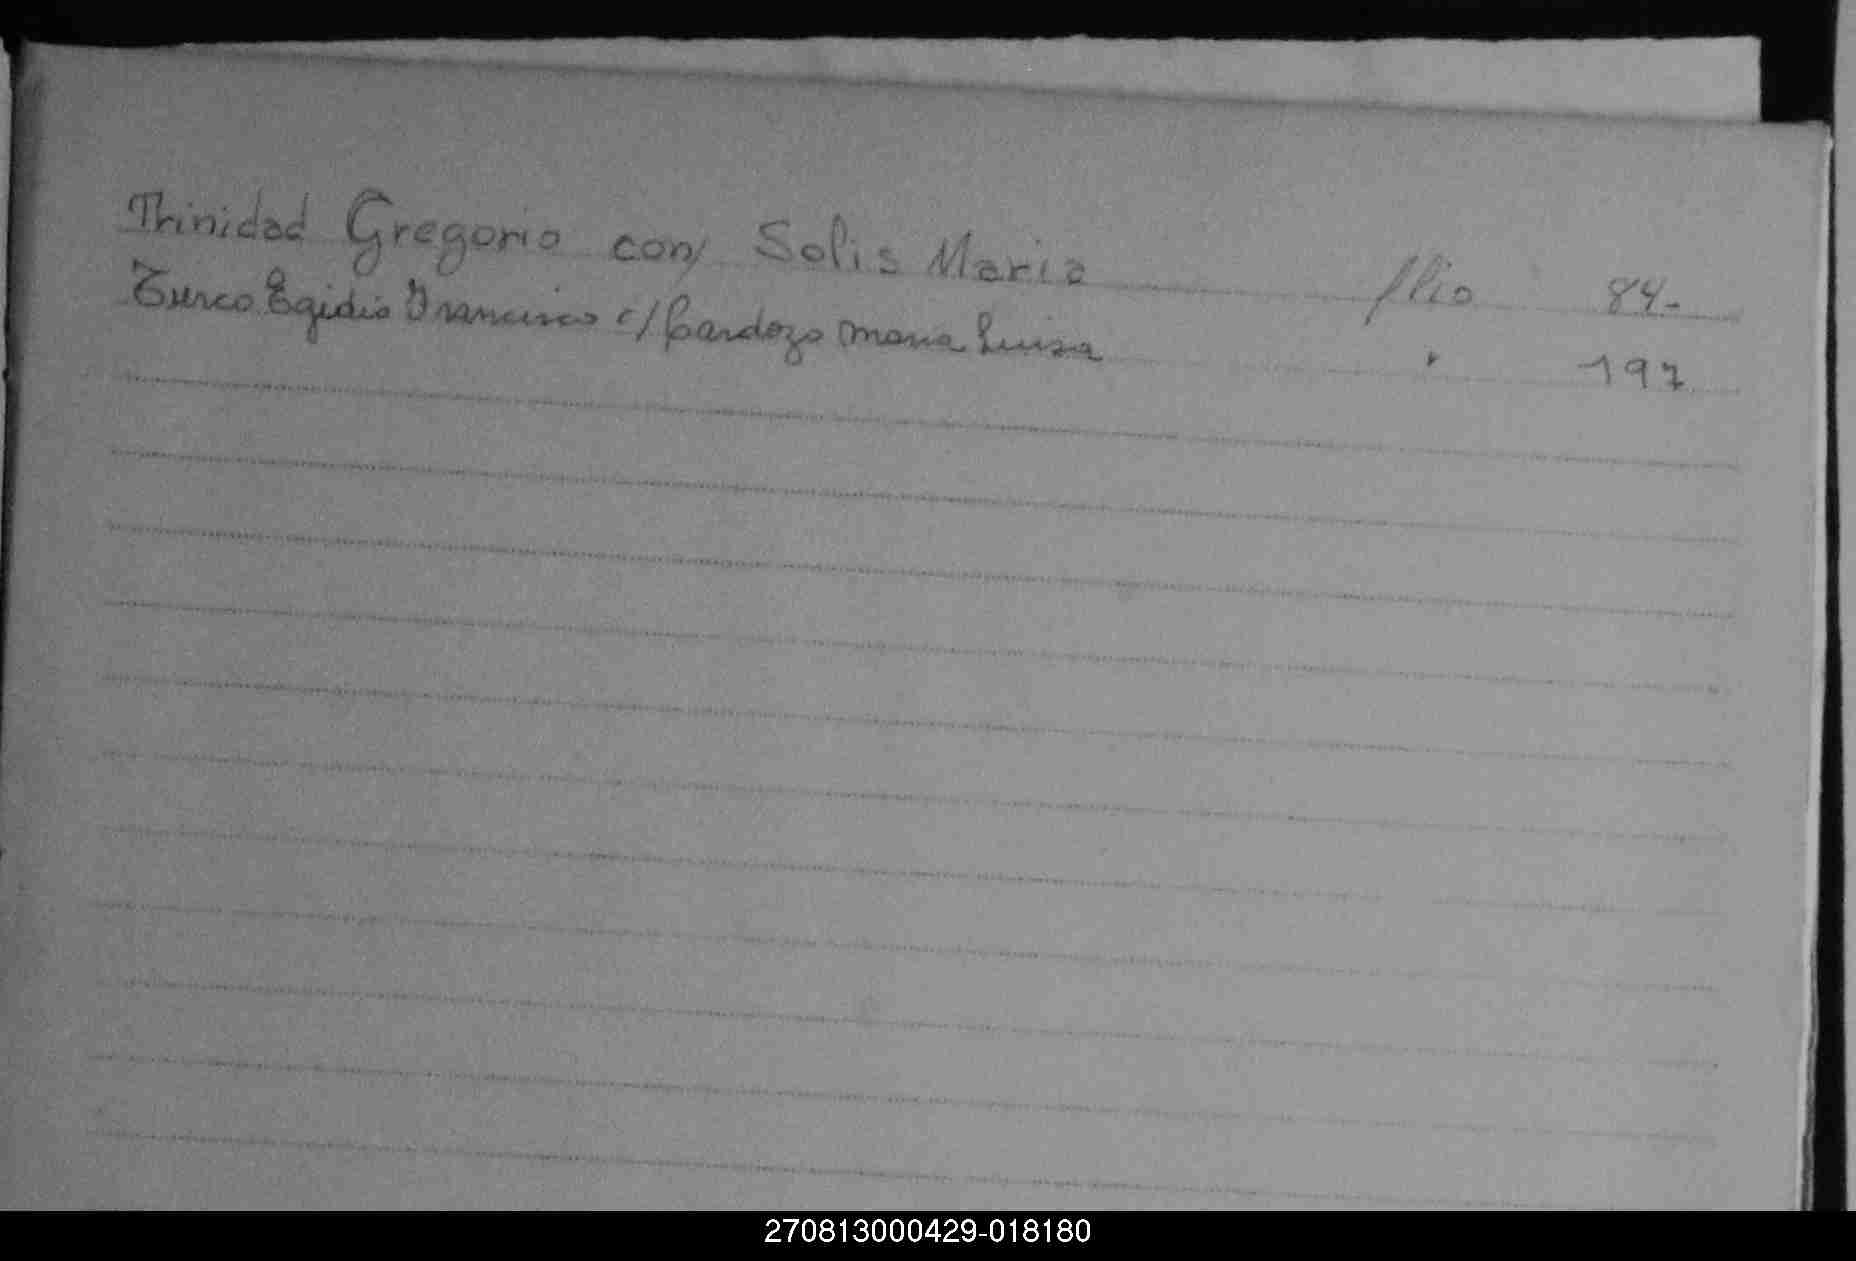 Trinidad Gregorio con/ Solis Maria flio 84-
Turco Egidio Francisco c/ Cardozo Maria Luisa " 197
270813000429-018180